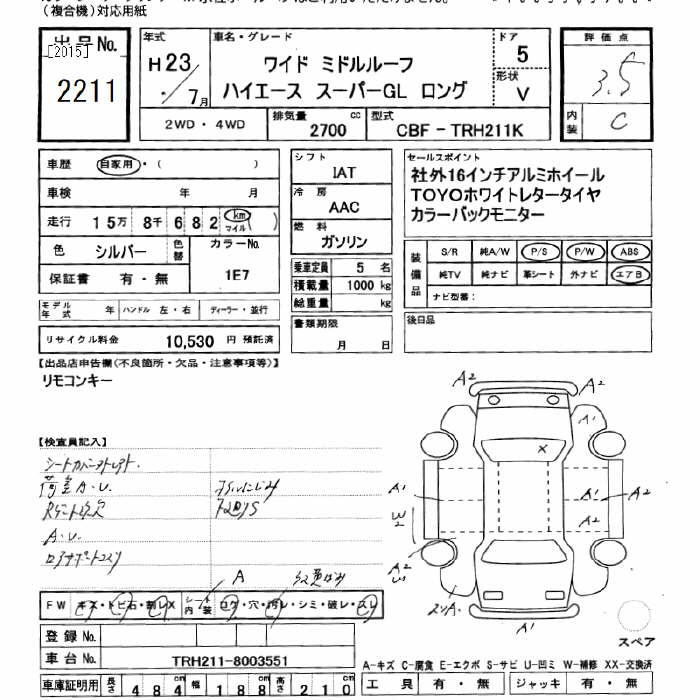 （複合機）対応用紙
出品No.
[2015]
2211
年式
H23
7月
車名・グレード
ワイド ミドルルーフ
ハイエース スーパーGL ロング
ドア
5
形状
V
2WD・4WD
排気量 cc
2700
型式
CBF-TRH211K
評価点
3.5
内装
C
車歴 自家用・( )
車検 年 月
走行 15万 8千 6 8 2 km マイル ( )
色 シルバー 色替 カラーNo.
保証書 有・無 1E7
モデル年式 年 ハンドル 左・右 ディーラー・並行
リサイクル料金 10,530 円 預託済
シフト
IAT
冷房
AAC
燃料
ガソリン
乗車定員 5 名
積載量 1000 kg
総重量 kg
書類期限
月 日
セールスポイント
社外16インチアルミホイール
TOYOホワイトレタータイヤ
カラーバックモニター
装備品
S/R 純A/W P/S P/W ABS
純TV 純ナビ 革シート 外ナビ エアB
ナビ型番:
後日品
【出品店申告欄(不良箇所・欠品・注意事項等)】
リモコンキー
【検査員記入】
荷室A・U.
A・U.
A
FW キズ・トビ石・割レX シート内装 コゲ・穴・汚レ・シミ・破レ・スレ
登録No.
車台No. TRH211-8003551
車庫証明用 長さ 484cm 幅 188cm 高さ 210cm
A2 A2
A1
X
A1 A1 A2
W2 A2
A2
A1
スペア
A-キズ C-腐食 E-エクボ S-サビ U-凹ミ W-補修 XX-交換済
工具 有・無 ジャッキ 有・無